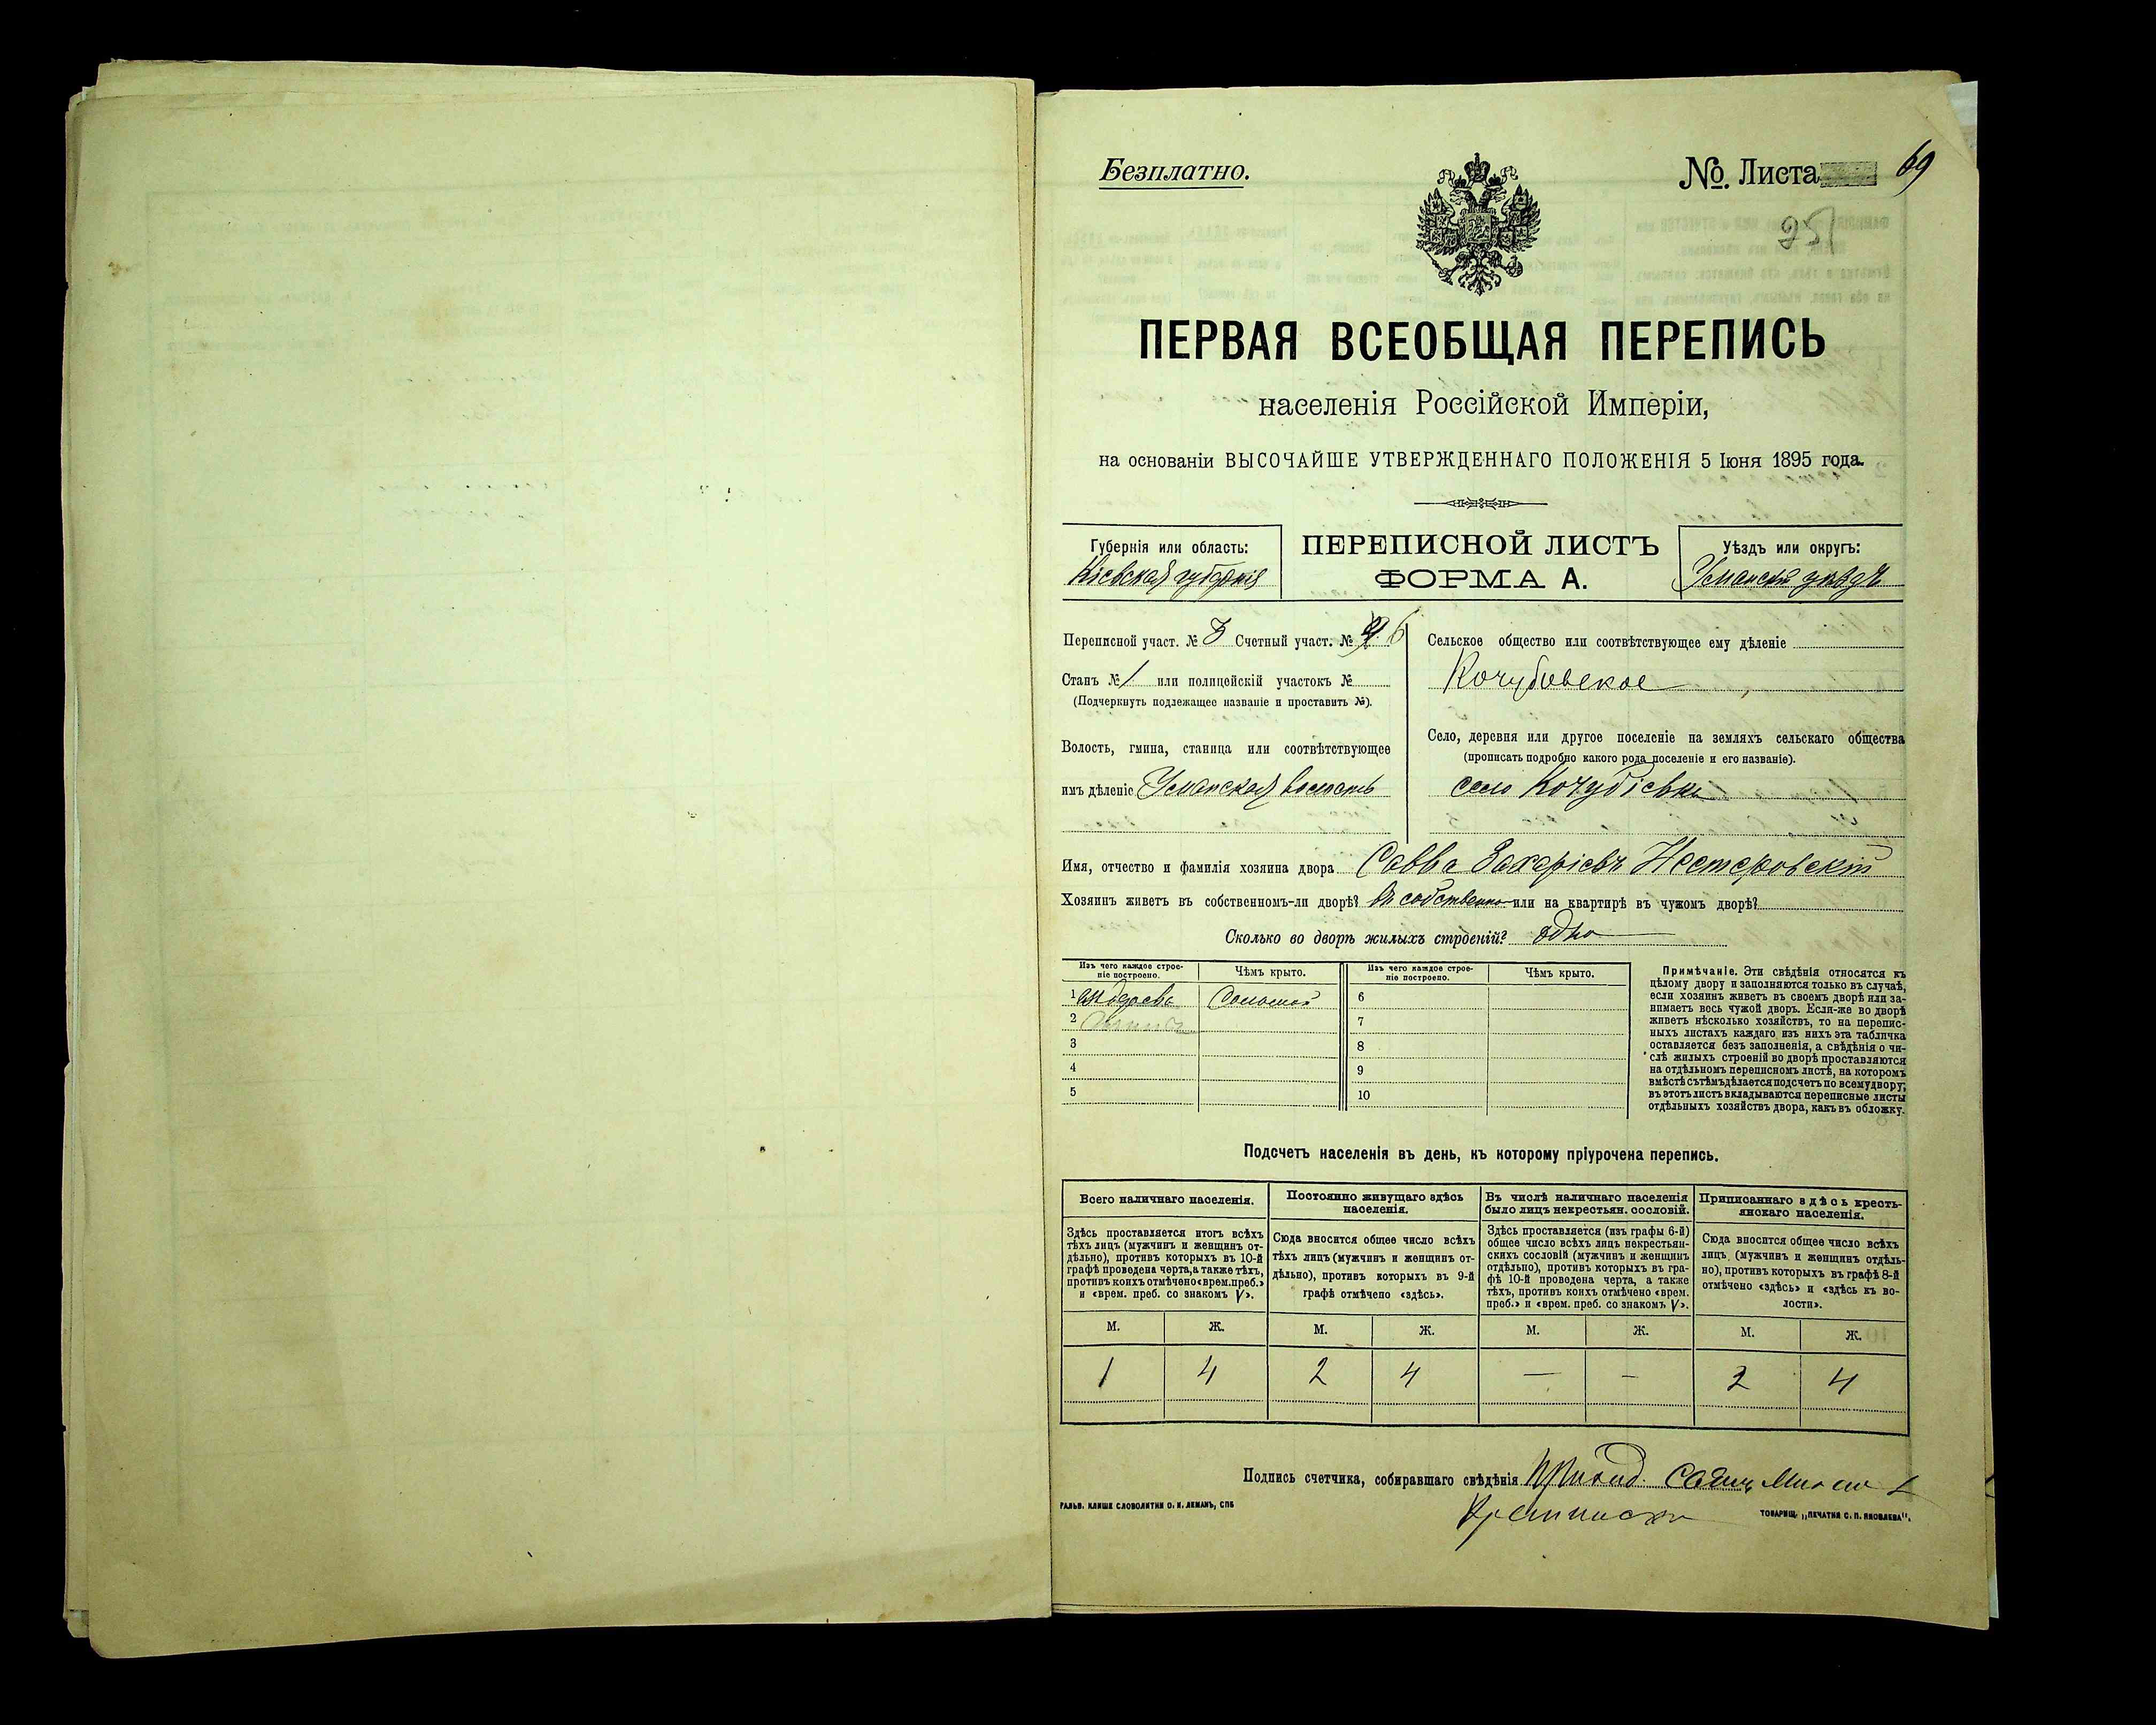 Безплатно.
№. Листа 69
95
ПЕРВАЯ ВСЕОБЩАЯ ПЕРЕПИСЬ
населенія Россійской Имперіи,
на основаніи ВЫСОЧАЙШЕ УТВЕРЖДЕННАГО ПОЛОЖЕНІЯ 5 Іюня 1895 года.
Губернія или область:
Кіевская губернія
ПЕРЕПИСНОЙ ЛИСТЪ
ФОРМА А.
Уѣздъ или округъ:
Уманскій уѣздъ
Переписной участ. № 3 Счетный участ. № 6
Станъ № 1 или полицейскій участокъ №
(Подчеркнуть подлежащее названіе и проставить №).
Волость, гмина, станица или соотвѣтствующее
имъ дѣленіе Уманская волость
Сельское общество или соотвѣтствующее ему дѣленіе
Кочубовское
Село, деревня или другое поселеніе на земляхъ сельскаго общества
(прописать подробно какого рода поселеніе и его названіе).
село Кочубіевка
Имя, отчество и фамилія хозяина двора Савва Захаріевъ Нестеровскій
Хозяинъ живетъ въ собственномъ-ли дворѣ? въ собственно или на квартирѣ въ чужомъ дворѣ?
Сколько во дворѣ жилыхъ строеній? одно
Изъ чего каждое строе-
ніе построено.
Чѣмъ крыто.
Изъ чего каждое строе-
ніе построено.
Чѣмъ крыто.
1 изъ дерева Соломой
2
3
4
5
6
7
8
9
10
Примѣчаніе. Эти свѣдѣнія относятся къ
цѣлому двору и заполняются только въ случаѣ,
если хозяинъ живетъ въ своемъ дворѣ или за-
нимаетъ весь чужой дворъ. Если-же во дворѣ
живетъ нѣсколько хозяйствъ, то на перепис-
ныхъ листахъ каждаго изъ нихъ эта табличка
оставляется безъ заполненія, а свѣдѣнія о чи-
слѣ жилыхъ строеній во дворѣ проставляются
на отдѣльномъ переписномъ листѣ, на которомъ
вмѣстѣ съ тѣмъ дѣлается подсчетъ по всему двору;
въ этотъ листъ вкладываются переписные листы
отдѣльныхъ хозяйствъ двора, какъ въ обложку.
Подсчетъ населенія въ день, къ которому пріурочена перепись.
Всего наличнаго населенія.
Здѣсь проставляется итогъ всѣхъ
тѣхъ лицъ (мужчинъ и женщинъ от-
дѣльно), противъ которыхъ въ 10-й
графѣ проведена черта, а также тѣхъ,
противъ коихъ отмѣчено «врем. преб.»
и «врем. преб. со знакомъ V».
Постоянно живущаго здѣсь
населенія.
Сюда вносится общее число всѣхъ
тѣхъ лицъ (мужчинъ и женщинъ от-
дѣльно), противъ которыхъ въ 9-й
графѣ отмѣчено «здѣсь».
Въ числѣ наличнаго населенія
было лицъ некрестьян. сословій.
Здѣсь проставляется (изъ графы 6-й)
общее число всѣхъ лицъ некрестьян-
скихъ сословій (мужчинъ и женщинъ
отдѣльно), противъ которыхъ въ гра-
фѣ 10-й проведена черта, а также
тѣхъ, противъ коихъ отмѣчено «врем.
преб.» и «врем. преб. со знакомъ V».
Приписаннаго здѣсь кресть-
янскаго населенія.
Сюда вносится общее число всѣхъ
лицъ (мужчинъ и женщинъ отдѣль-
но), противъ которыхъ въ графѣ 8-й
отмѣчено «здѣсь» и «здѣсь къ во-
лости».
М. Ж. М. Ж. М. Ж. М. Ж.
1 4 2 4 — - 2 4
Подпись счетчика, собиравшаго свѣдѣнія
ГАЛЬВ. КЛИШЕ СЛОВОЛИТНИ О. И. ЛЕМАНЪ, СПБ
ТОВАРИЩ. „ПЕЧАТНЯ С. П. ЯКОВЛЕВА“.